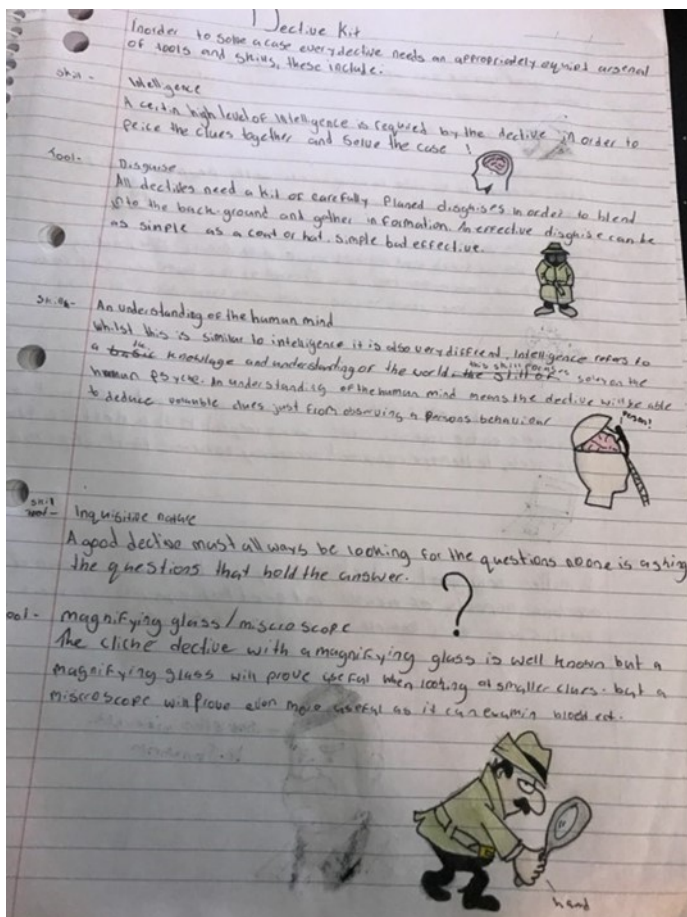 Dective Kit
Inorder to solve a case every dective needs an appropriately equied arsenal
of tools and skills, these include:
Skil - Intelligence
A certin high level of intelligence is required by the dective in order to
peice the clues together and solve the case !
Tool- Disguise
All dectives need a kit of carefully planed disghises in order to blend
into the back ground and gather information. An effective disghise can be
as simple as a coat or hat. simple but effective.
Skill - An understanding of the human mind
Whilst this is similar to intelligence it is also very differend. Intelligence refers to
a basic knowlage and understanding of the world. this skill the skill of soley on the
human psyche. An understanding of the human mind means the dective will be able
to deduce valuable clues just from observing a persons behaviour
person!
skil
tool- Inquisitive nature
A good dective must all ways be looking for the questions no one is asking
the questions that hold the answer.
?
ool- magnifying glass/miscroscope
The cliche dective with a magnifying glass is well known but a
magnifying glass will prove useful when looking at smaller clues. but a
miscroscope will prove even more useful as it can examin blood ect.
hand